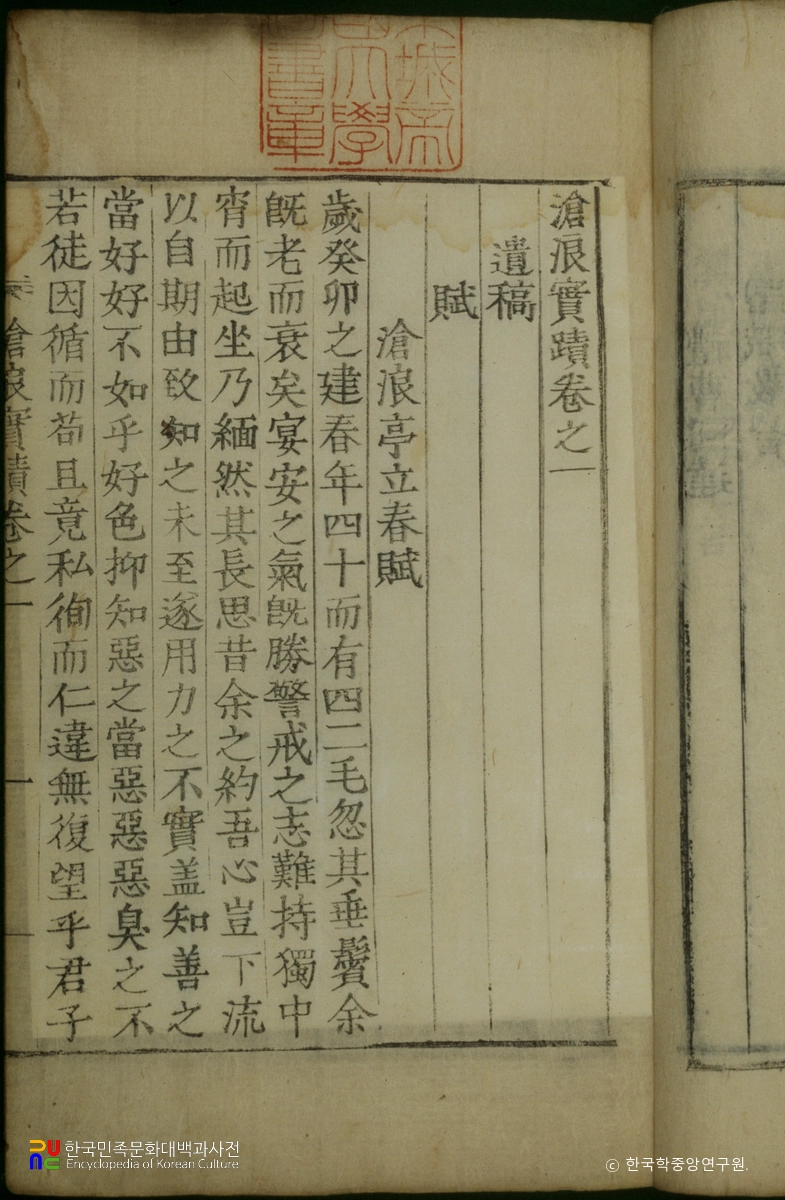 滄浪實蹟卷之一
遺稿
賦
滄浪亭立春賦
歲癸卯之建春年四十而有四二毛忽其垂鬢余
旣老而衰矣宴安之氣旣勝警戒之志難持獨中
宵而起坐乃緬然其長思昔余之約吾心豈下流
以自期由致知之未至遂用力之不實盖知善之
當好好不如乎好色抑知惡之當惡惡惡臭之不
若徒因循而苟且竟私徇而仁違無復望乎君子
滄浪實蹟卷之一
一
城帝
大學
書章
한국민족문화대백과사전
Encyclopedia of Korean Culture
© 한국학중앙연구원.